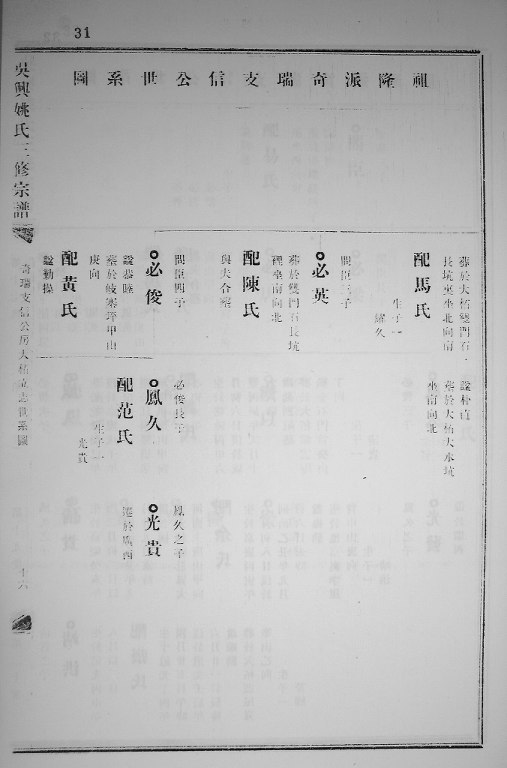 31
祖隆派奇瑞支信公世系圖
葬於大栃雙門石
長坑坐北向南
諡朴直
葬於大栃大水坑
坐南向北
配馬氏
生子一
耀久
問臣三子
必英
葬於雙門石長坑
裡坐南向北
配陳氏
與夫合葬
問臣四子
必俊
諡恭睦
葬於岐寨墘甲山
庚向
配黃氏
諡勤操
必俊長子
鳳久
配范氏
生子一
光貴
鳳久之子
光貴
遷於廣西
吳興姚氏三修宗譜
奇瑞支信公房大栃立志世系圖
十六